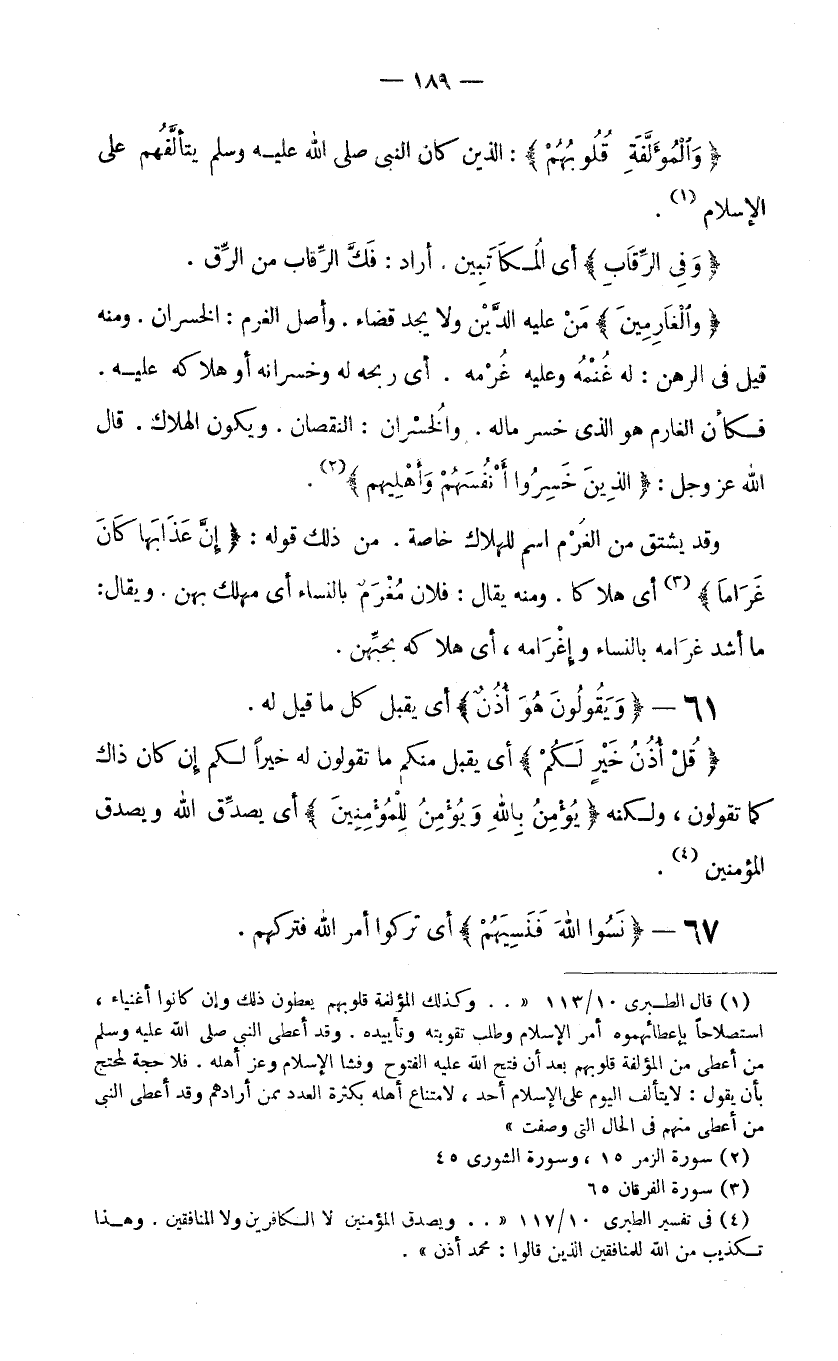 — ١٨٩ —
﴿ وَٱلْمُؤَلَّفَةِ قُلُوبُهُمْ ﴾ : الذين كان النبى صلى الله عليه وسلم يتألَّفُهم على
الإسلام (١) .
﴿ وَفِى الرِّقَابِ ﴾ أى الْمـكاتَبِين . أراد : فَكَّ الرِّقاب من الرِّق .
﴿ وٱلْغَارِمِينَ ﴾ مَنْ عليه الدَّيْن ولا يجد قضاء . وأصل الغرم : الخسران . ومنه
قيل فى الرهن : له غُنْمُهُ وعليه غُرْمه . أى ربحه له وخسرانه أو هلاكه عليه .
فـكأن الغارم هو الذى خسر ماله . والْخُسْران : النقصان . ويكون الهلاك . قال
الله عز وجل : ﴿ الذِينَ خَسِرُوا أَنْفُسَهُمْ وَأَهْلِيهِم ﴾(٢) .
وقد يشتق من الغُرْم اسم للهلاك خاصة . من ذلك قوله : ﴿ إِنَّ عَذَابَها كَانَ
غَرَاماً ﴾ (٣) أى هلاكا . ومنه يقال : فلان مُغْرَمٌ بالنساء أى مهلك بهن . ويقال:
ما أشد غرامه بالنساء وإغْرَامه ، أى هلاكه بحبِّهن .
٦١ — ﴿ وَيَقُولُونَ هُوَ أُذُنٌ ﴾ أى يقبل كل ما قيل له .
﴿ قُلْ أُذُنُ خَيْرٍ لَـكُمْ ﴾ أى يقبل منكم ما تقولون له خيراً لـكم إن كان ذاك
كما تقولون ، ولـكنه ﴿ يُؤْمِنُ بِاللهِ وَيُؤْمِنُ لِلْمُؤْمِنِينَ ﴾ أى يصدِّق الله ويصدق
المؤمنين (٤) .
٦٧ — ﴿ نَسُوا اللهَ فَنَسِيَهُمْ ﴾ أى تركوا أمر الله فتركهم .
(١) قال الطـبرى ١١٣/١٠ « . . وكذلك المؤلفة قلوبهم يعطون ذلك وإن كانوا أغنياء ،
استصلاحاً بإعطائهموه أمر الإسلام وطلب تقويته وتأييده . وقد أعطى النبي صلى الله عليه وسلم
من أعطى من المؤلفة قلوبهم بعد أن فتح الله عليه الفتوح وفشا الإسلام وعز أهله . فلا حجة لمحتج
بأن يقول : لايتألف اليوم على الإسلام أحد ، لامتناع أهله بكثرة العدد ممن أرادهم وقد أعطى النبى
من أعطى منهم فى الحال التى وصفت »
(٢) سورة الزمر ١٥ ، وسورة الشورى ٤٥
(٣) سورة الفرقان ٦٥
(٤) فى تفسير الطبرى ١١٧/١٠ « . . ويصدق المؤمنين لا الـكافرين ولا المنافقين . وهـذا
تـكذيب من الله للمنافقين الذين قالوا : محمد أذن » .